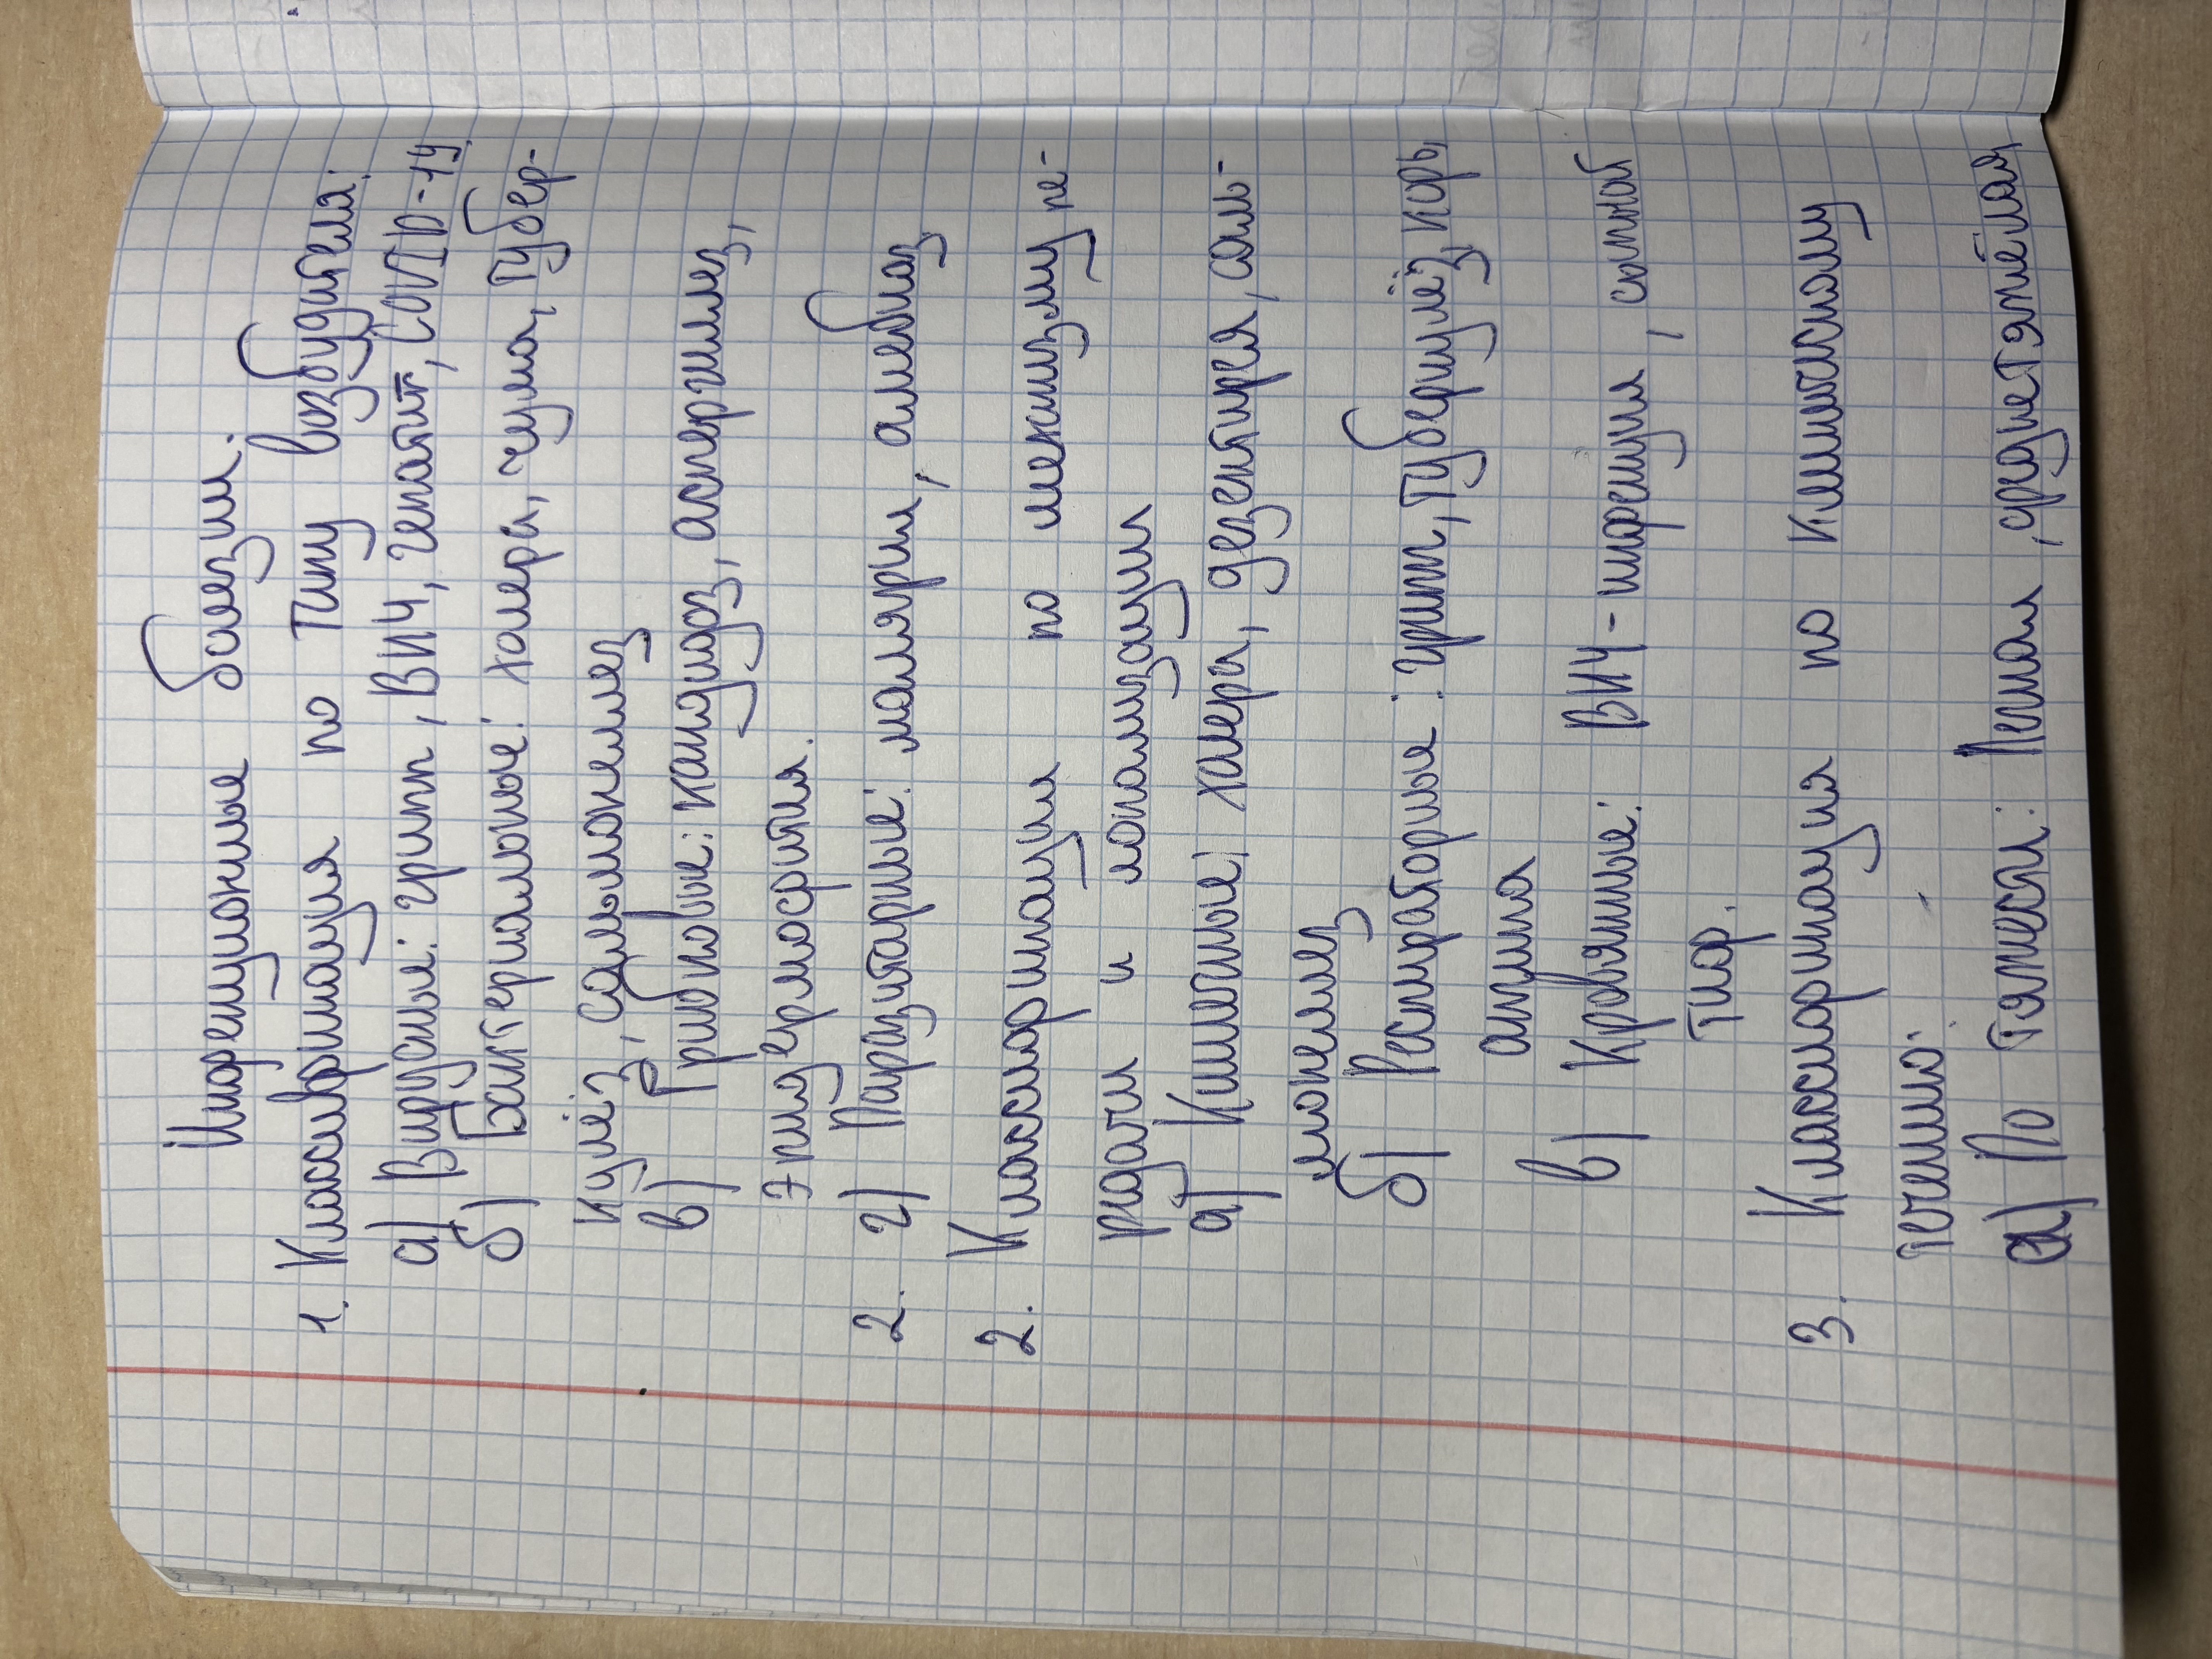 Инфекционные болезни.
1. Классификация по типу возбудителя:
а) Вирусные: грипп, ВИЧ, гепатит, COVID-19.
б) Бактериальные: холера, чума, тубер-
кулёз, сальмонеллез
в) Грибковые: кандидоз, аспергиллез,
эпидермофития.
2. г) Паразитарные: малярия, амебиаз
2. Классификация по механизму пе-
редачи и локализации
а) Кишечные: холера, дезентирея, саль-
монеллез
б) Респираторные: грипп, туберкулёз, корь,
ангина
в) Кровяные: ВИЧ-инфекция, сыпной
тиф.
3. Классификация по клиническому
течению.
а) По тяжести: Легкая, среднетяжёлая,